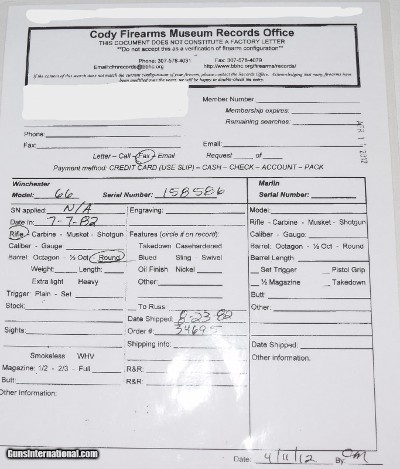 Cody Firearms Museum Records Office
THIS DOCUMENT DOES NOT CONSTITUTE A FACTORY LETTER
**Do not accept this as a verification of firearm configuration**
Phone: 307-578-4031 Fax: 307-578-4079
Email:cfmrecords@bbhc.org http://www.bbhc.org/firearms/records/
If the content of this search does not match the current configuration of your firearm, please contact the Records Office.
Member Number
Membership expires:
Remaining searches:
Phone:
Fax: Email
Letter – Call – Fax – Email Request of
Payment method: CREDIT CARD (USE SLIP) – CASH – CHECK – ACCOUNT – PACK
Winchester Marlin
Model: 66 Serial Number: 158586 Serial Number:
SN applied: N/A Engraving: Model:
Date in: 7-7-82 Rifle - Carbine - Musket - Shotgun
Rifle - Carbine - Musket - Shotgun Features (circle if on record): Caliber - Gauge:
Caliber - Gauge Takedown Casehardened Barrel: Octagon - ½ Oct - Round
Barrel: Octagon - ½ Oct - Round Blued Sling Swivel Barrel Length:
Weight: Length: Oil Finish Nickel Set Trigger Pistol Grip
Extra light Heavy Other: ½ Magazine Takedown
Trigger Plain - Set Butt:
Stock: To Russ Other:
Date Shipped: 8-23-82
Order # 34695
Sights: Shipping info: Date Shipped:
Other information:
Smokeless WHV
Magazine: 1/2 - 2/3 - Full R&R:
Butt: R&R:
Other Information:
GunsInternational.com
Date: 4/11/12 By: CM